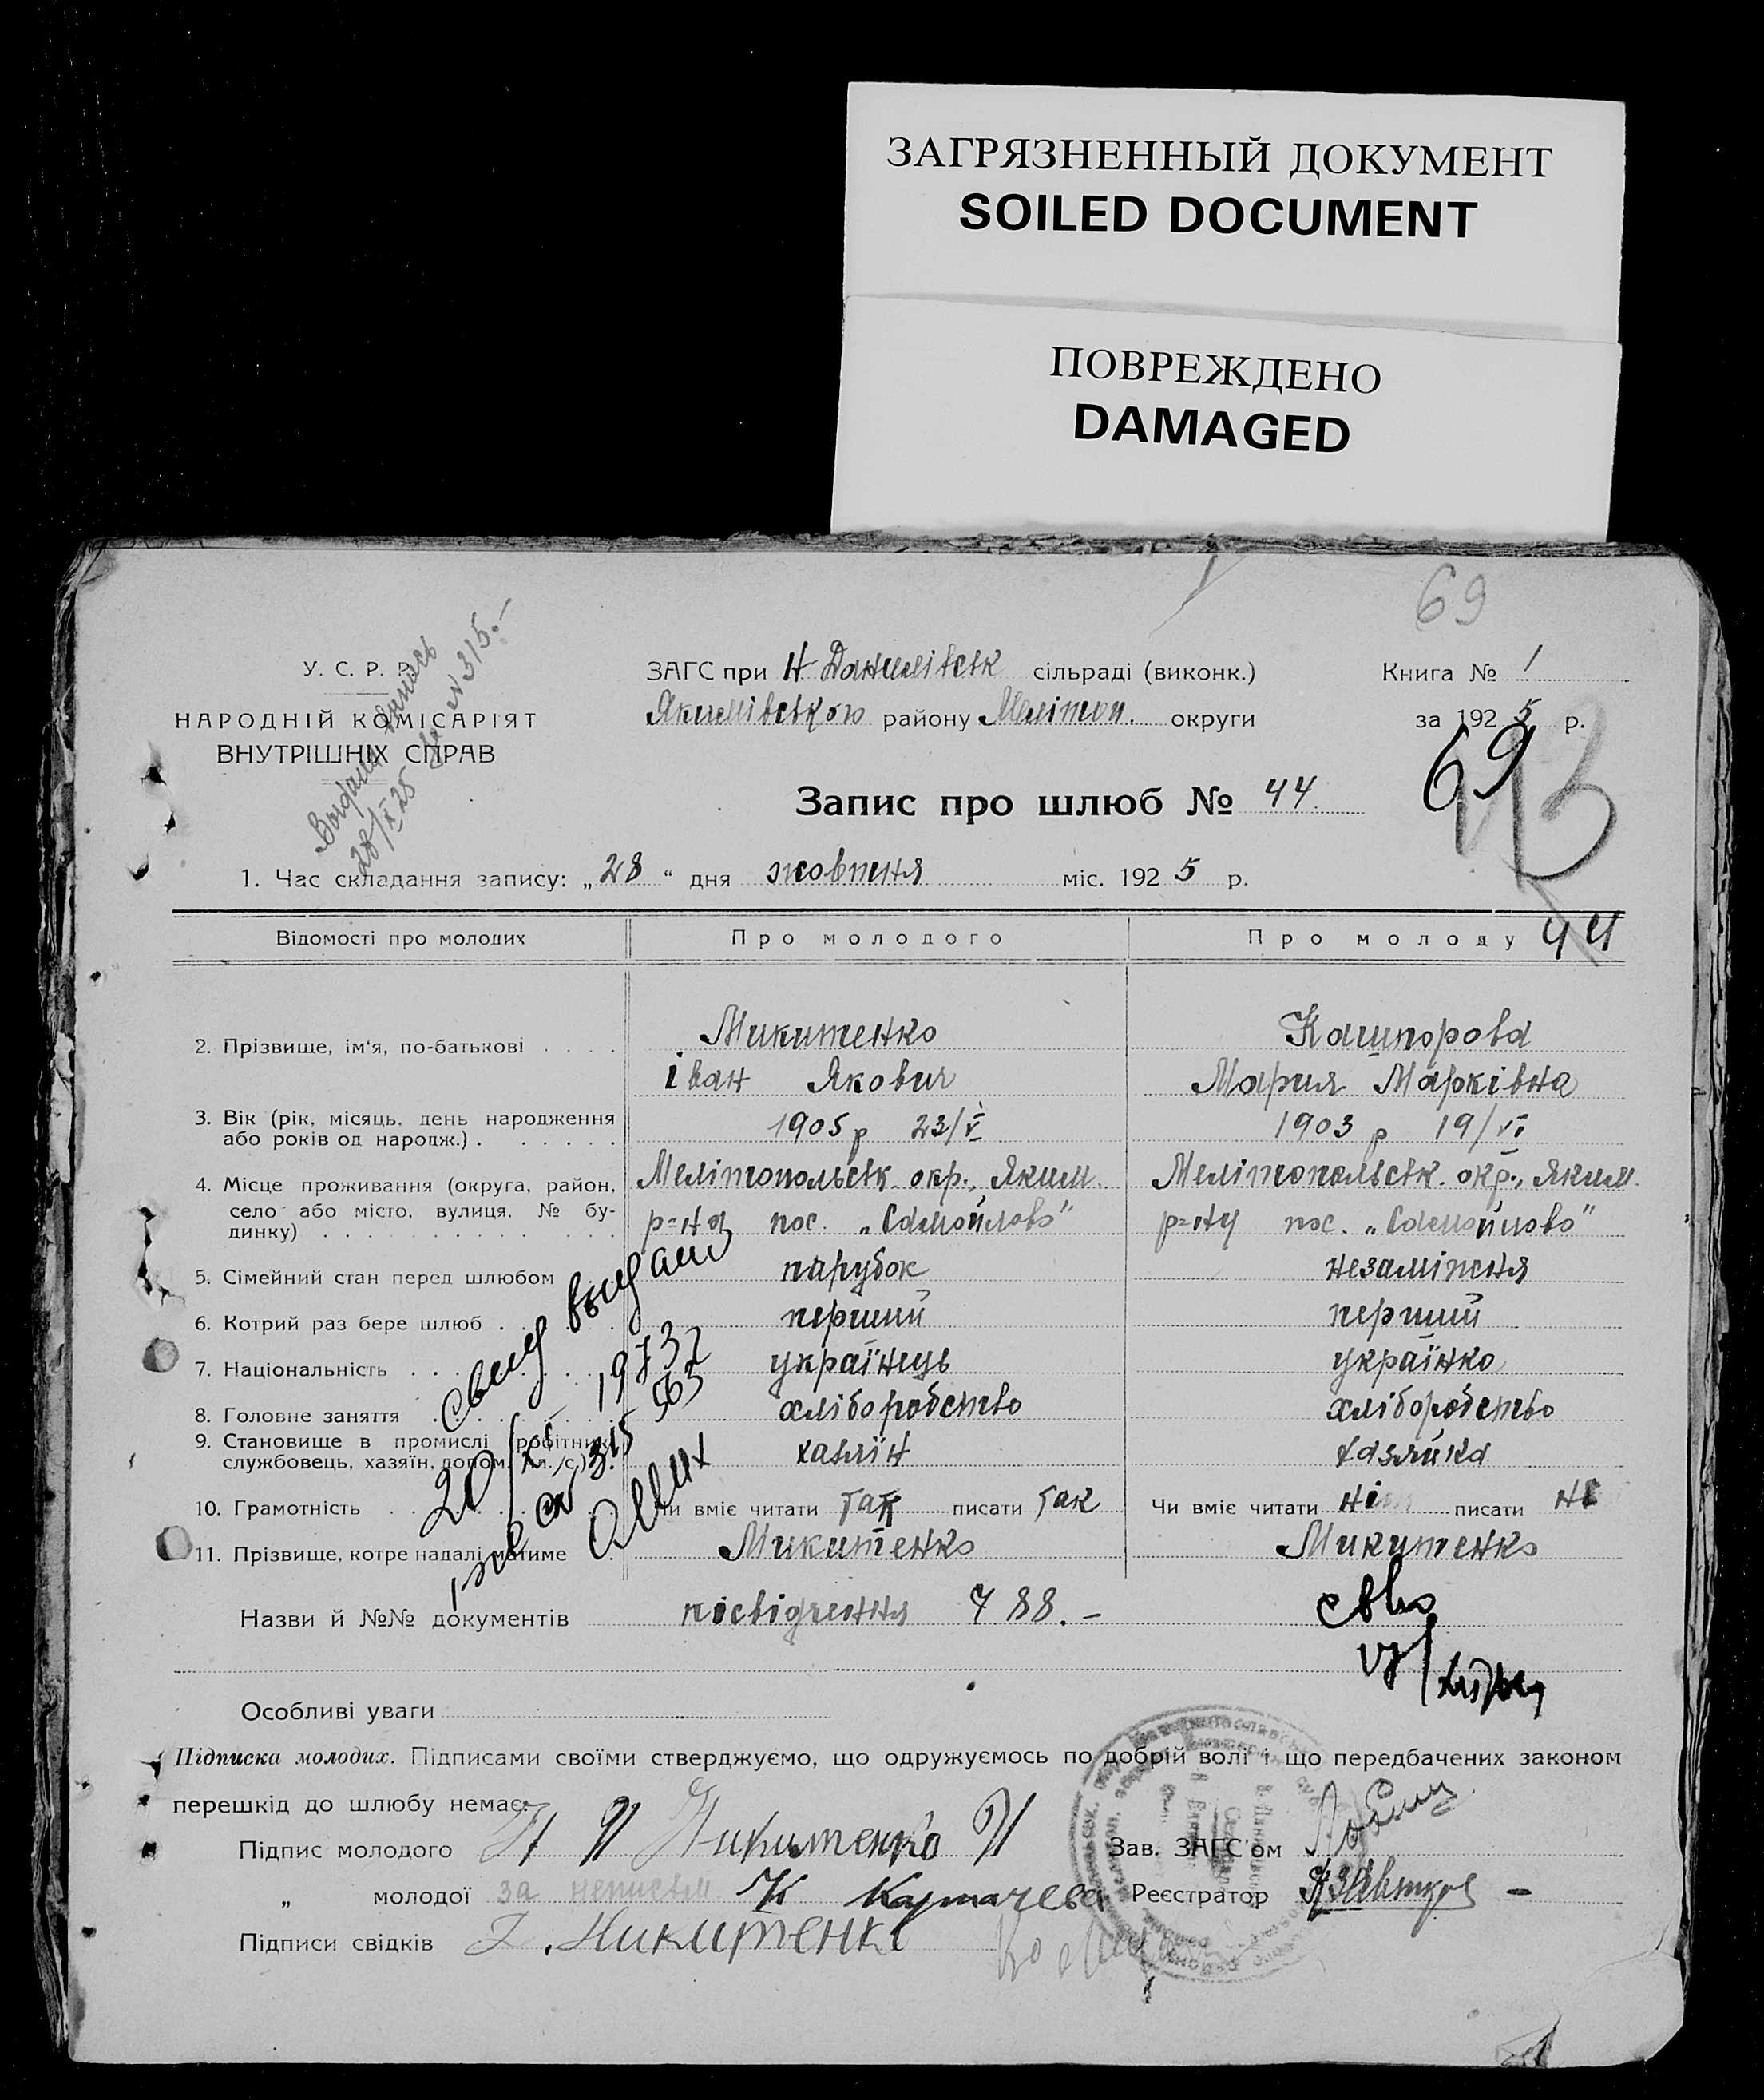 ЗАГРЯЗНЕННЫЙ ДОКУМЕНТ
SOILED DOCUMENT
ПОВРЕЖДЕНО
DAMAGED
69
У. С. Р. Р.
НАРОДНІЙ КОМІСАРІЯТ
ВНУТРІШНІХ СПРАВ
28/X 25 № 315.-
ЗАГС при Н Данилівськ сільраді (виконк.)
Якимівського району Меліт. округи
Книга № 1
за 1925 р.
69
Запис про шлюб № 44
1. Час складання запису: „28“ дня жовтня міс. 1925 р.
Відомості про молодих Про молодого Про молоду 44
2. Прізвище, ім'я, по-батькові . . . . Микитенко Кашпорова
Іван Якович Мария Марківна
3. Вік (рік, місяць, день народження
або років од народж.) . . . . . . 1905 р 23/V 1903 р 19/VI
4. Місце проживання (округа, район, Мелітопольськ. окр., Яким. Мелітопольськ. окр., Яким.
село або місто, вулиця, № бу-
динку) р=ну пос. „Самойлово" р=ну пос. „Самойлово"
5. Сімейний стан перед шлюбом парубок незаміжня
6. Котрий раз бере шлюб . перший перший
7. Національність українець українка
8. Головне заняття хліборобство хліборобство
9. Становище в промислі (робітник,
службовець, хазяїн, допом. чл. с.) хазяїн хазяйка
10. Грамотність Чи вміє читати так писати так Чи вміє читати ніт писати ні
11. Прізвище, котре надалі матиме Микитенко Микитенко
свид выдано
20/XI 1973
Назви й №№ документів посвідчення 788.-
Особливі уваги
Підписка молодих. Підписами своїми стверджуємо, що одружуємось по добрій волі і що передбачених законом
перешкід до шлюбу немає.
Підпис молодого Никитенко Зав. ЗАГС'ом
„ молодої за неписьм Реєстратор
Підписи свідків Никитенко